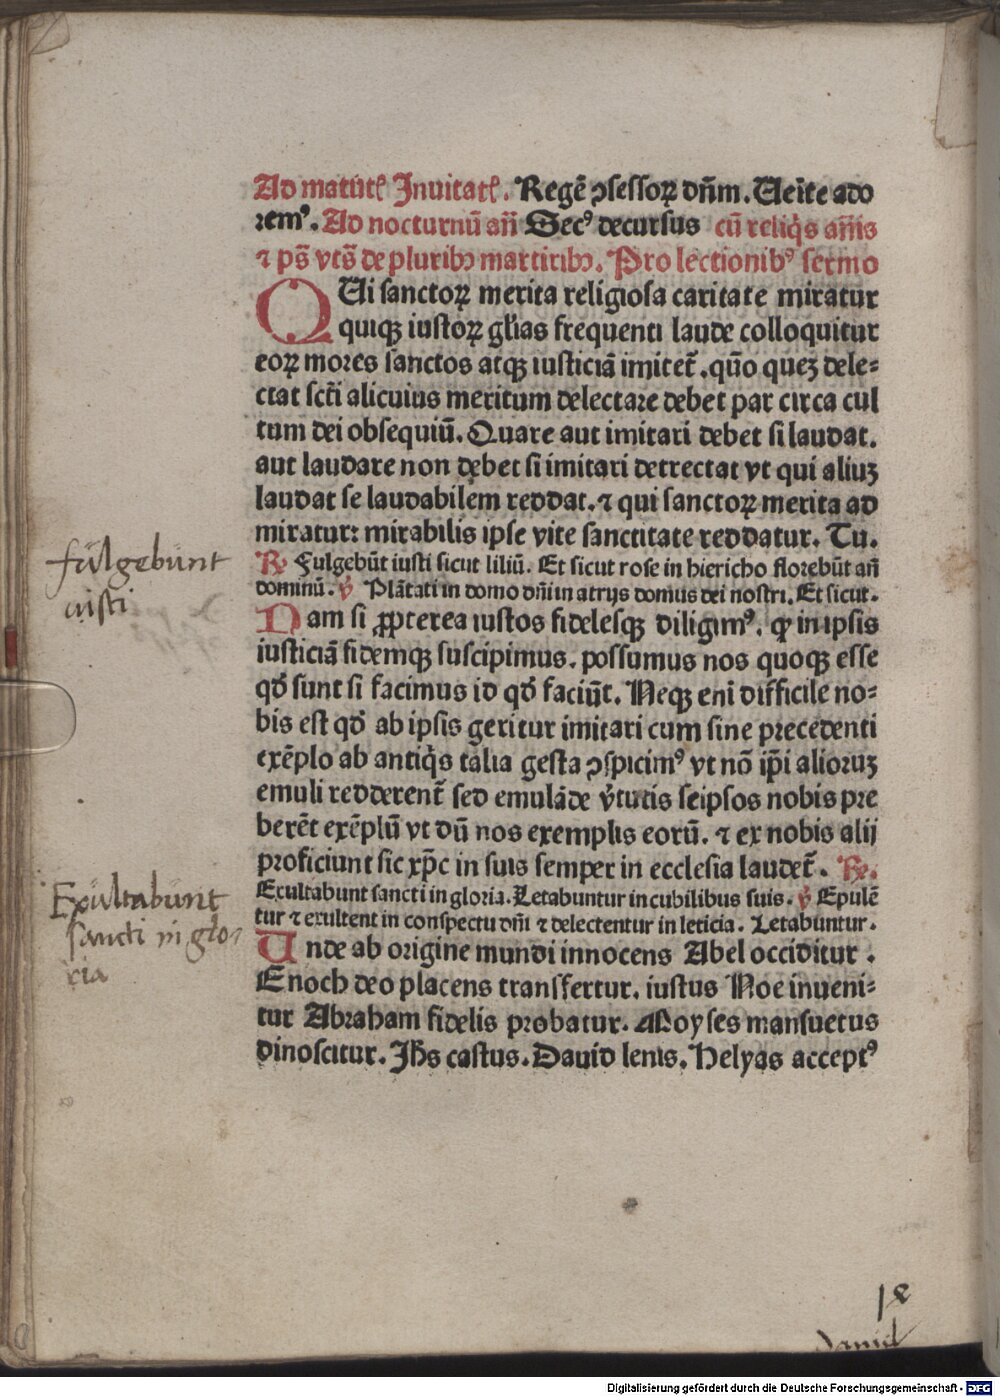 Ad matutꝭ Inuitatꝭ. Regē ꝯfeſſoꝝ dn̄m. Uēite ado
remꝰ. Ad nocturnū an̄ Secꝰ decurſus cū reliq̇s an̄is
⁊ ps̄ vts̄ de pluribꝫ martiribꝫ. Pro lectionibꝰ ſermo
QUi ſanctoꝝ merita religioſa caritate miratur
quiqꝫ iuſtoꝝ gl̄ias frequenti laude colloquitur
eoꝝ mores ſanctos atqꝫ iuſticiā imitet̄. qūo quēꝫ dele⸗
ctat ſcti̅ alicuius meritum delectare debet par circa cul
tum dei obſequiū. Quare aut imitari debet ſi laudat.
aut laudare non debet ſi imitari detrectat vt qui aliuꝫ
laudat ſe laudabilem reddat. ⁊ qui ſanctoꝝ merita ad
miratur: mirabilis ipſe vite ſanctitate reddatur. Tu.
℟. Fulgebūt iuſti ſicut liliū. Et ſicut roſe in hiericho florebūt an̄
dominū. v̇ Plātati in domo dn̄i in atrijs domus dei noſtri. Et ſicut.
Nam ſi ꝓpterea iuſtos fideleſqꝫ diligimꝰ. qꝛ in ipſis
iuſticiā fidemqꝫ ſuſcipimus. poſſumus nos quoqꝫ eſſe
qd̄ ſunt ſi facimus id qd̄ faciūt. Neqꝫ eni̅ difficile no⸗
bis eſt qd̄ ab ipſis geritur imitari cum ſine precedenti
exēplo ab antiq̇s talia geſta ꝯſpicimꝰ vt nō ip̄i alioruꝫ
emuli redderent̄ ſed emulāde v̇tutis ſeipſos nobis pre
berēt exēplū vt dū nos exemplis eorū. ⁊ ex nobis alij
proficiunt ſic xp̄c in ſuis ſemper in eccleſia laudet̄. ℟.
Exultabunt ſancti in gloria. Letabuntur in cubilibus ſuis. v̇ Epulē
tur ⁊ exultent in conſpectu dn̄i ⁊ delectentur in leticia. Letabuntur.
Unde ab origine mundi innocens Abel occiditur.
Enoch deo placens transfertur. iuſtus Noe inueni⸗
tur Abraham fidelis probatur. Moyſes manſuetus
dinoſcitur. Jh̄s caſtus. Dauid lenis. Helyas acceptꝰ
fulgebunt
iusti
Exultabunt
sancti in glo-
ria
18
daniel
Digitalisierung gefördert durch die Deutsche Forschungsgemeinschaft - DFG